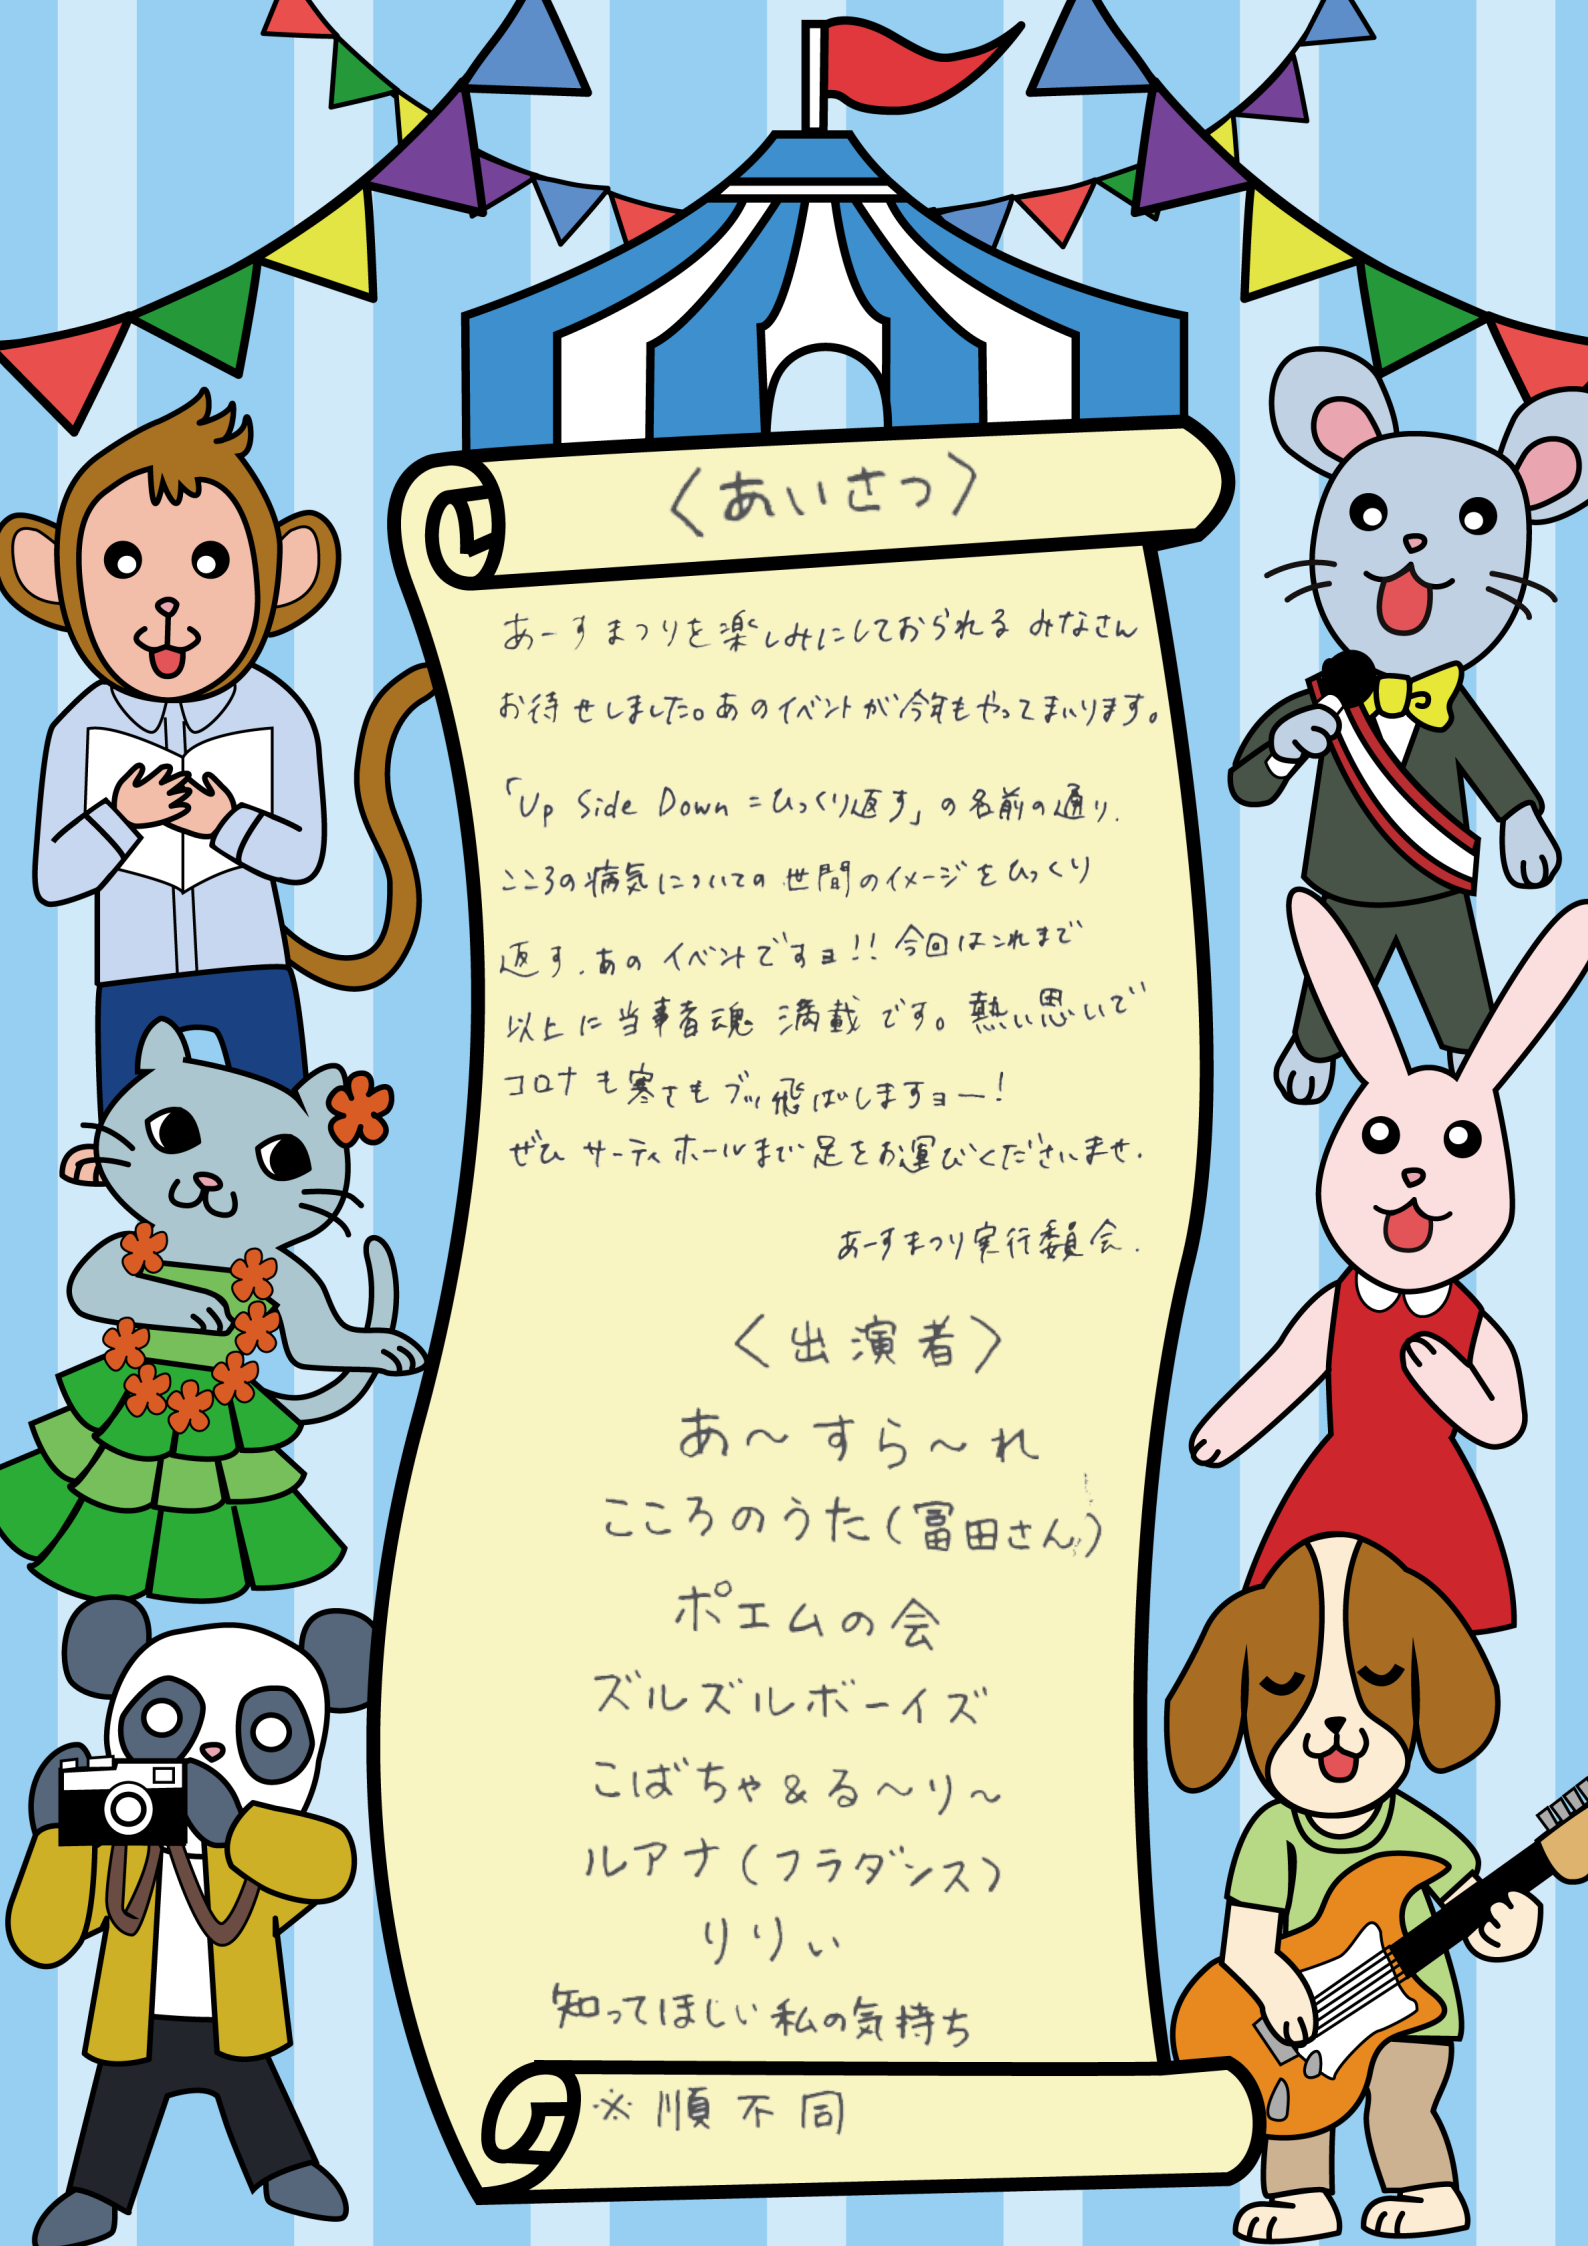 〈あいさつ〉
あーすまつりを楽しみにしておられるみなさん
お待せしました。あのイベントが今年もやってまいります。
「Up Side Down=ひっくり返す」の名前の通り、
こころの病気についての世間のイメージをひっくり
返す、あのイベントですョ!!今回はこれまで
以上に当事者魂満載です。熱い思いで
コロナも寒さもブッ飛ばしますョー!
ぜひサーティホールまで足をお運びくださいませ。
あーすまつり実行委員会.
〈出演者〉
あ〜すら〜れ
こころのうた(冨田さん)
ポエムの会
ズルズルボーイズ
こばちゃ&る〜り〜
ルアナ(フラダンス)
りりぃ
知ってほしい私の気持ち
※順不同